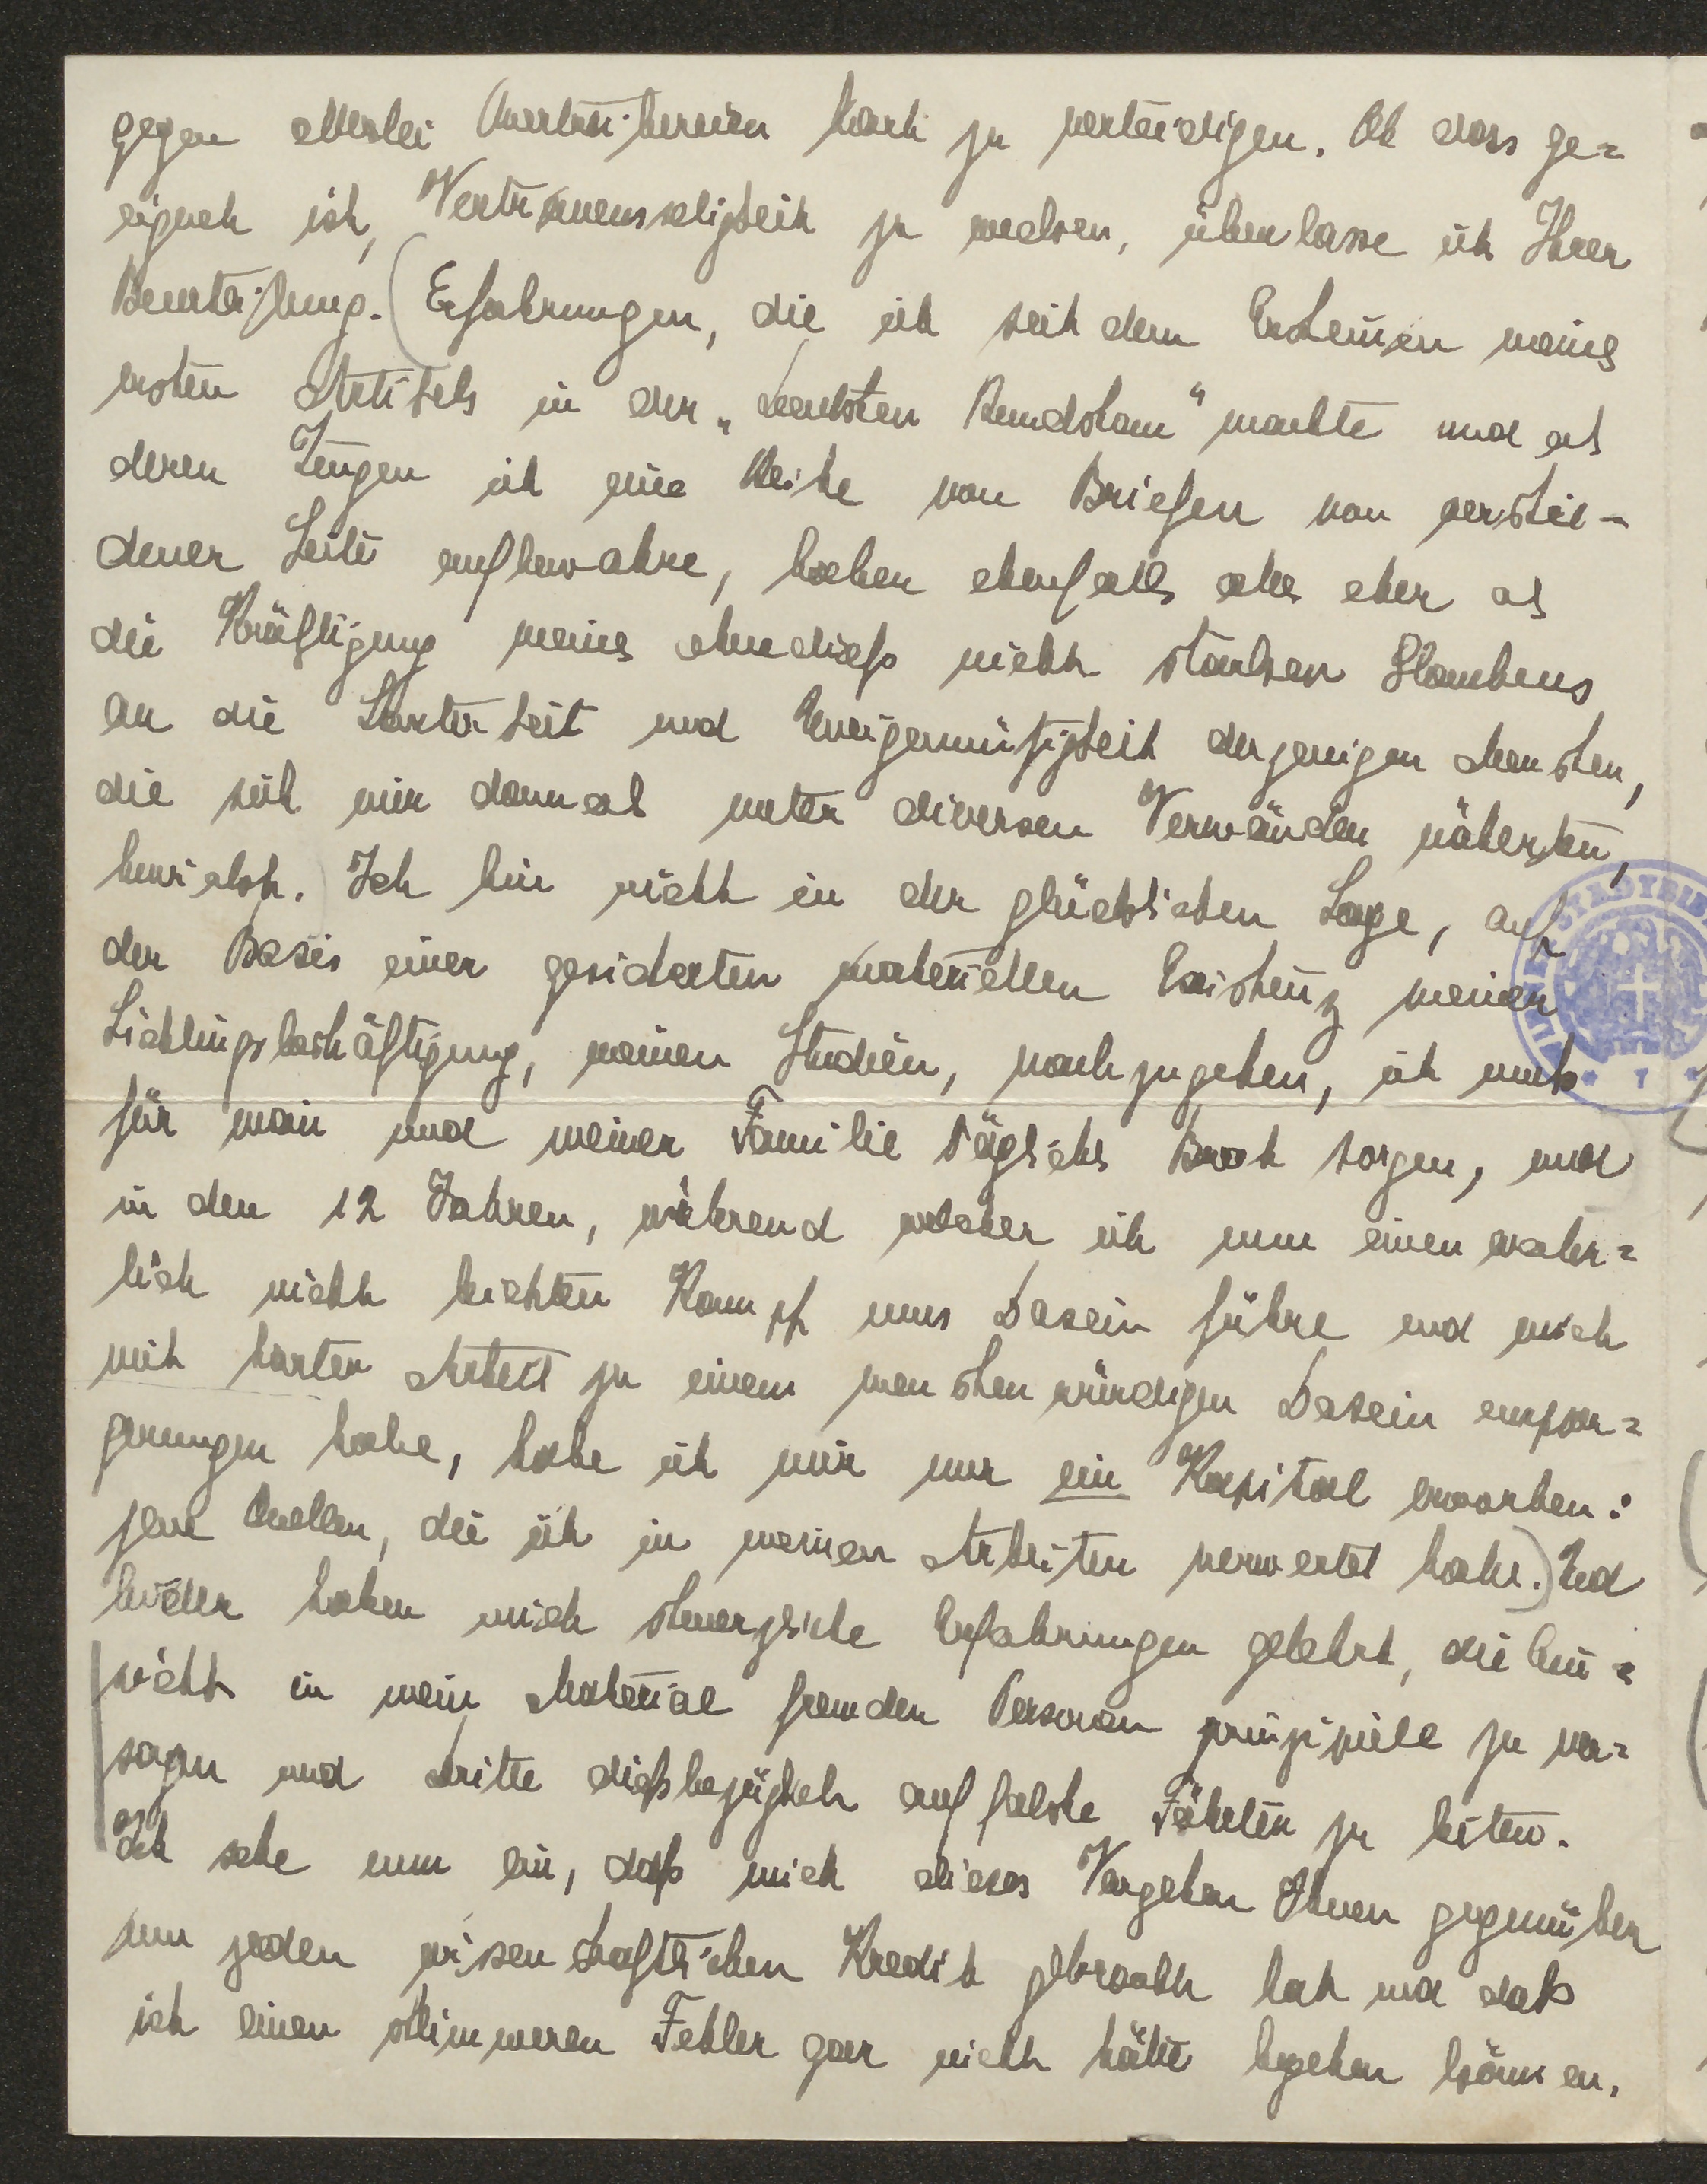 gegen allerlei Quertreibereien hart zu verteidigen. Ob dass ge=
eignet ist, Vertrauensseligkeit zu wecken, überlasse ich Ihrer
Beurteilung. (Erfahrungen, die ich seit dem Erscheinen meines
ersten Artikels in der „Deutschen Rundschau" machte und als
deren Zeugen ich eine Reihe von Briefen von verschie-
dener Seite aufbewahre, haben ebenfalls alles eher als
die Kräftigung meines ohnediess nicht starken Glaubens
an die Lauterkeit und Uneigennützigkeit derjenigen Menschen,
die sich mir damals unter diversen Vorwänden näherten,
bewirkt. Ich bin nicht in der glücklichen Lage, auf
der Basis einer gesicherten materiellen Existenz meiner
Lieblingsbeschäftigung, meinen Studien, nachzugehen, ich muß
für mein und meiner Familie tägliches Brot sorgen, und
in den 12 Jahren, während welcher ich nun einen wahr=
lich nicht leichten Kampf ums Dasein führe und mich
mit harter Arbeit zu einem menschenwürdigen Dasein empor=
gerungen habe, habe ich mir nur ein Kapital erworben:
jene Quellen, die ich in meinen Arbeiten verwertet habe.) Und
leider haben mich schmerzliche Erfahrungen gelehrt, die Ein=
sicht in mein Material fremden Personen prinzipiell zu ver=
sagen und Dritte diesbezüglich auf falsche Fährten zu leiten.
Ich sehe nun ein, daß mich dieses Vorgehen Ihnen gegenüber
um jeden wissenschaftlichen Kredit gebracht hat und daß
ich einen schlimmeren Fehler gar nicht hätte begehen können.